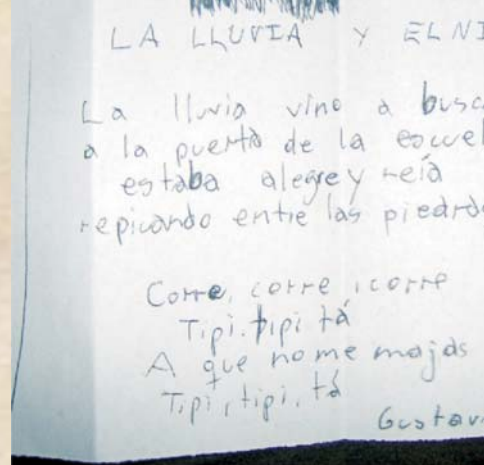 LA LLUVIA Y EL NI
La lluvia vino a busca
a la puerta de la escuel
estaba alegre y reía
repicando entre las piedra
Corre, corre, corre
Tipi. tipi tá
A que no me mojas
Tipi, tipi, tá
Gustav